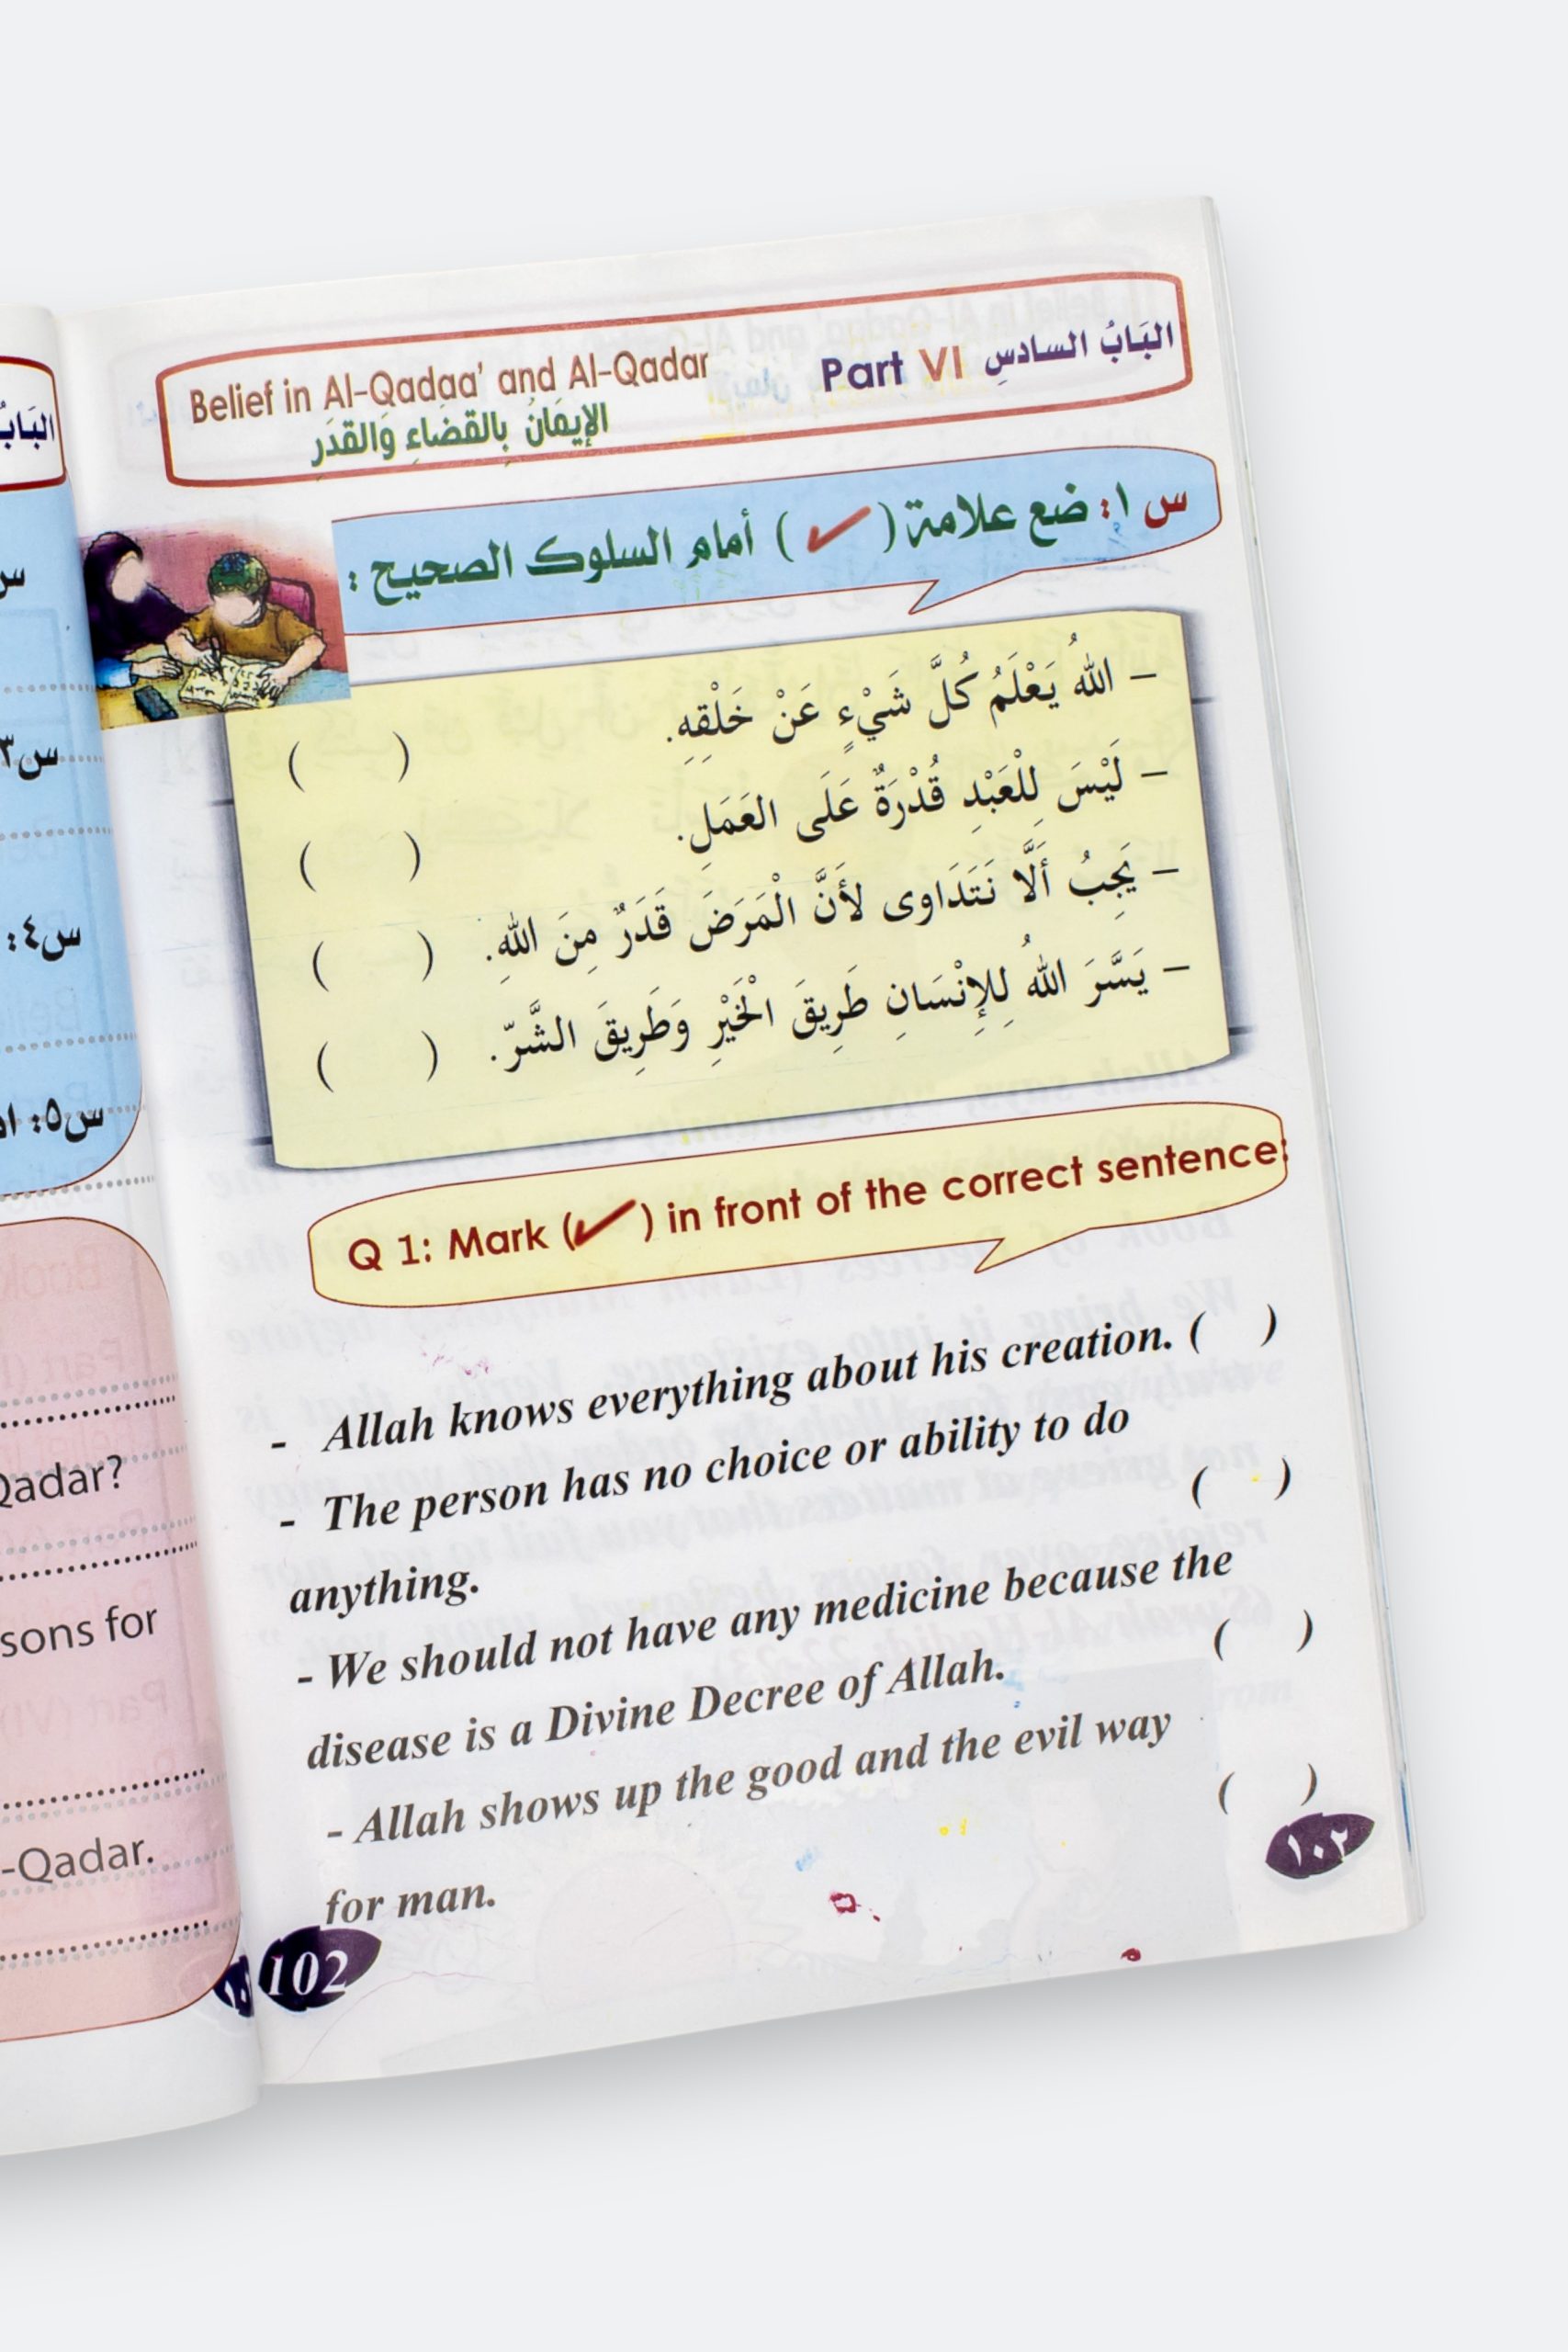 Belief in Al-Qadaa' and Al-Qadar
Part VI البَابُ السادسِ
الإيمَانُ بِالقضَاءِ وَالقدَر
س ١: ضع علامة ( ✓ ) أمام السلوك الصحيح :
– اللهُ يَعْلَمُ كُلَّ شَيْءٍ عَنْ خَلْقِهِ. ( )
– لَيْسَ لِلْعَبْدِ قُدْرَةٌ عَلَى العَمَلِ. ( )
– يَجِبُ أَلَّا نَتَدَاوى لأَنَّ الْمَرَضَ قَدَرٌ مِنَ اللهِ. ( )
– يَسَّرَ اللهُ لِلإِنْسَانِ طَرِيقَ الْخَيْرِ وَطَرِيقَ الشَّرّ. ( )
Q 1: Mark (✓) in front of the correct sentence:
- Allah knows everything about his creation. ( )
- The person has no choice or ability to do
anything. ( )
- We should not have any medicine because the
disease is a Divine Decree of Allah. ( )
- Allah shows up the good and the evil way
for man. ( )
١٠٢
102
س٣
س٤:
س٥:
Qadar?
sons for
-Qadar.